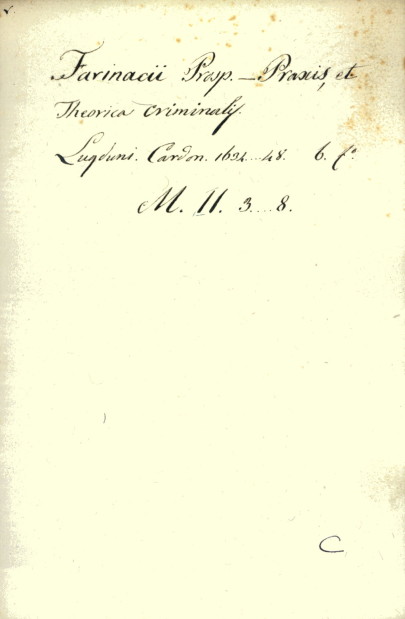 Farinacii Prosp. — Praxis, et
Theorica criminalis.
Lugduni. Cardon. 1624...48. 6. fº.
M. II. 3....8.
C